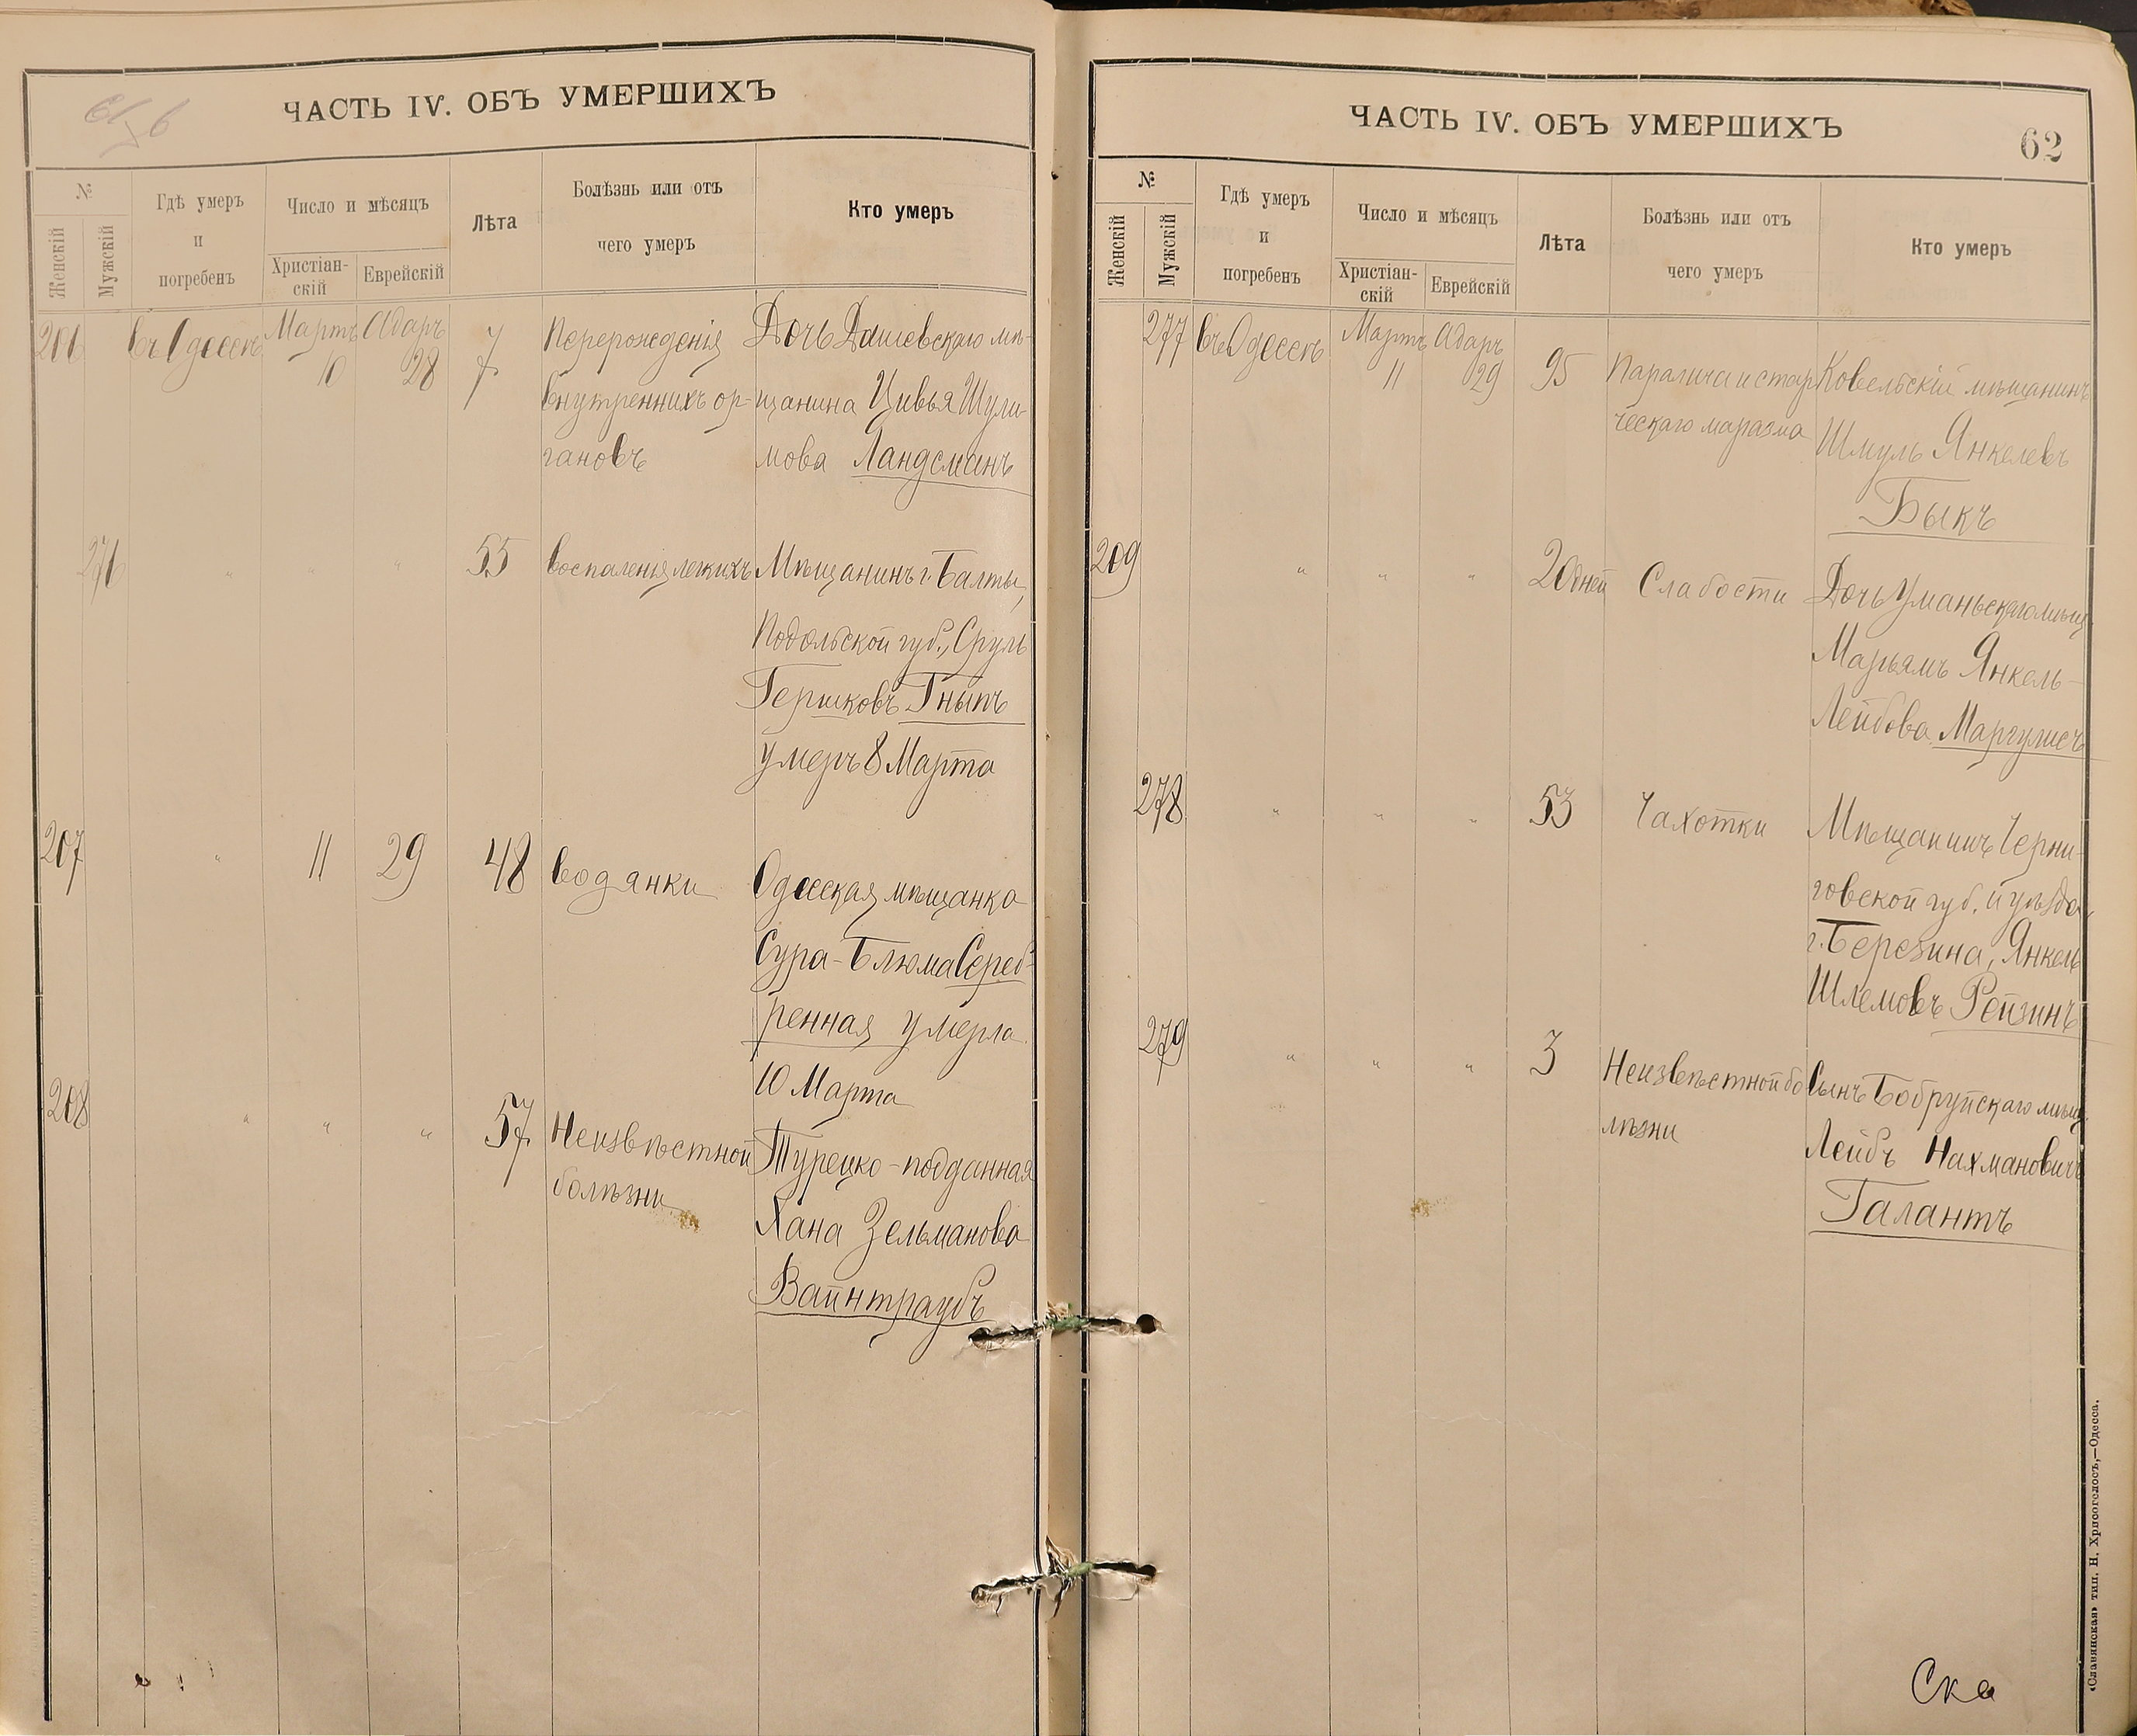 ЧАСТЬ IV. ОБЪ УМЕРШИХЪ
№
Женскій
Мужскій
Гдѣ умеръ
и
погребенъ
Число и мѣсяцъ
Христіан-
скій
Еврейскій
Лѣта
Болѣзнь или отъ
чего умеръ
Кто умеръ
206 въ Одессѣ Мартъ Адаръ 7 Перерожденія Дочь Дашевскаго мѣ-
10 28 внутреннихъ ор- щанина Цивья Шули-
гановъ мова Ландсманъ
276 " " " 55 воспаленія легкихъ Мѣщанинъ г. Балты,
Подольской губ., Сруль
Гершковъ Гныпъ
умеръ 8 Марта
207 " 11 29 48 водянки Одесская мѣщанка
Сура-Блюма Сереб-
ренная умерла
10 Марта
208 " " " 57 Неизвѣстной Турецко-подданная
болѣзни Хана Зельманова
Вайнтраубъ
ЧАСТЬ IV. ОБЪ УМЕРШИХЪ
62
№
Женскій
Мужскій
Гдѣ умеръ
и
погребенъ
Число и мѣсяцъ
Христіан-
скій
Еврейскій
Лѣта
Болѣзнь или отъ
чего умеръ
Кто умеръ
277 въ Одессѣ Мартъ Адаръ
11 29 95 Паралича и стар Ковельскій мѣщанинъ
ческаго маразма Шмуль Янкелевъ
Быкъ
209 " " " 20 дней Слабости Дочь Уманьскаго мѣщ.
Марьямъ Янкель-
Лейбова Маргулисъ
278 " " " 53 Чахотки Мѣщанинъ Черни-
говской губ. и уѣзда,
г. Березина, Янкель
Шлемовъ Рейзинъ
279 " " " 3 Неизвѣстной бо Сынъ Бобруйскаго мѣщ.
лѣзни Лейбъ Нахмановичъ
Галантъ
Ска
«Славянская» тип. Н. Хрисогелосъ,—Одесса.